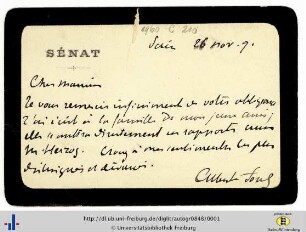 1960 C 215
SÉNAT
Paris 26 nov. 9.
Cher Monsieur
Je vous remercie infiniment de votre obligeance
J'ai écrit à la famille de mon jeune ami,
elle directement en rapports avec
Mr Herzog. Croyez à mes sentiments les plus
distingués et dévoués.
Albert
http://dl.ub.uni-freiburg.de/diglit/autog/0848/0001
© Universitätsbibliothek Freiburg